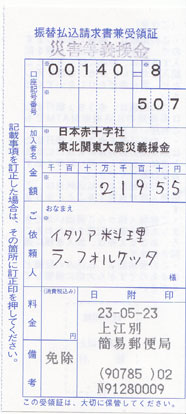 振替払込請求書兼受領証
災害等義援金
口座記号番号
00140-8
507
加入者名
日本赤十字社
東北関東大震災義援金
金額
千百十万千百十円
21955
ご依頼人
おなまえ
イタリア料理
ラ・フォルケッタ
様
料金
(消費税込み)
免除
備考
日附印
23-05-23
上江別
簡易郵便局
(90785 )02
N91280009
記載事項を訂正した場合は、その箇所に訂正印を押してください。
この受領証は、大切に保管してください。